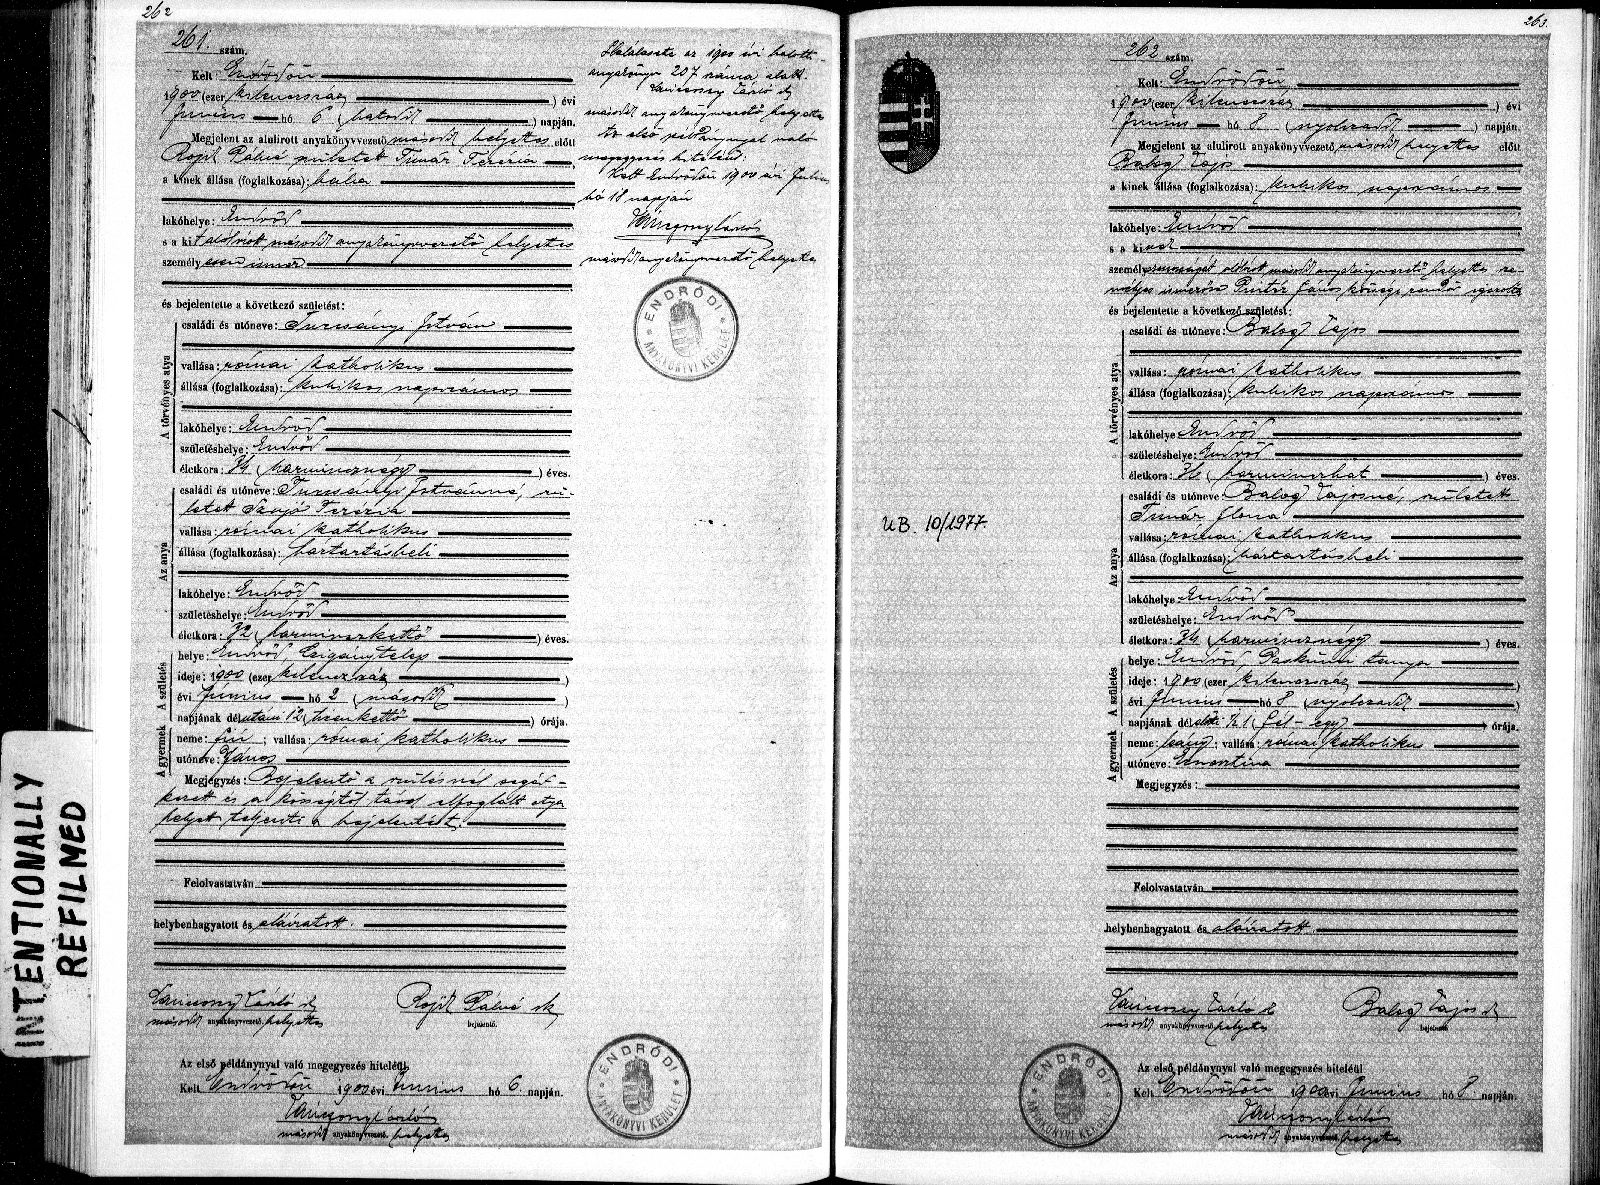 262
261. szám.
Kelt Endrődön
1900 (ezer kilencszáz) évi
Junius hó 6 (hatodik) napján.
Megjelent az alulirott anyakönyvvezető másodk helyettes előtt
Rojik Pálné született Timár Terézia
a kinek állása (foglalkozása): bába
lakóhelye: Endrőd
s a kit alólirott másodk anyakönyvvezető helyettes
személyesen ismer
és bejelentette a következő születést:
A törvényes atya
családi és utóneve: Timsányi István
vallása: római katholikus
állása (foglalkozása): kubikos napszámos
lakóhelye: Endrőd
születéshelye: Endrőd
életkora: 34 (harmincznégy) éves.
Az anya
családi és utóneve: Timsányi Istvánné, szü-
letett Terézia
vallása: római katholikus
állása (foglalkozása): háztartásbeli
lakóhelye: Endrőd
születéshelye: Endrőd
életkora: 32 (harminczkettő) éves.
A születés
helye: Endrőd Czigánytelep
ideje: 1900 (ezer kilenczszáz)
évi Június hó 2 (második)
napjának délutáni 12 (tizenkettő) órája.
A gyermek
neme: fiú; vallása: római katholikus
utóneve: János
Megjegyzés: Bejelentő a szülésnél segéd-
kezett és a községtől távol elfoglalt atya
helyett teljesíti a bejelentést.
Felolvastatván
helybenhagyatott és aláiratott.
Vaniesony László sk
másodk anyakönyvvezető helyettes
Rojik Pálné sk
bejelentő.
Az első példánynyal való megegyezés hiteléül.
Kelt Endrődön 1900 évi Junius hó 6. napján.
másodk anyakönyvvezető helyettes
ENDRŐDI ANYAKÖNYVI KERÜLET
Elhalálozása az 1900 évi halotti
anyakönyv 207 száma alatt.
László sk
másodk anyakönyvvezető helyettes
Az első példánynyal való
megegyezés hiteléül:
Kelt Endrődön 1900 évi Julius
hó 18 napján
másodk anyakönyvvezető helyettes
ENDRŐDI ANYAKÖNYVI KERÜLET
263.
UB. 10/1977.
262 szám.
Kelt: Endrődön,
1900 (ezer kilenczszáz) évi
Június hó 8 (nyolczadik) napján.
Megjelent az alulirott anyakönyvvezető másodk helyettes előtt
Balog Lajos
a kinek állása (foglalkozása): kubikos napszámos
lakóhelye: Endrőd
s a kinek
személyazonosságát alólirott másodk anyakönyvvezető helyettes sze-
mélyes ismerőse Pintér János községi rendőr igazolta
és bejelentette a következő születést:
A törvényes atya
családi és utóneve: Balog Lajos
vallása: római katholikus
állása (foglalkozása): kubikos napszámos
lakóhelye: Endrőd
születéshelye: Endrőd
életkora: 36 (harminczhat) éves.
Az anya
családi és utóneve: Balog Lajosné, született
Timár Ilona
vallása: római katholikus
állása (foglalkozása): háztartásbeli
lakóhelye: Endrőd
születéshelye: Endrőd
életkora: 34 (harmincznégy) éves.
A születés
helye: Endrőd, tanya
ideje: 1900 (ezer kilenczszáz)
évi Junius hó 8 (nyolczadik)
napjának délelőtti ½1 (fél-egy) órája.
A gyermek
neme: leány; vallása: római katholikus
utóneve: Ernesztina
Megjegyzés:
Felolvastatván
helybenhagyatott és aláiratott
László sk
másodk anyakönyvvezető helyettes
Balog Lajos sk
bejelentő
Az első példánynyal való megegyezés hiteléül
Kelt Endrődön 1900 évi Junius hó 8. napján.
másodk anyakönyvvezető helyettes
ENDRŐDI ANYAKÖNYVI KERÜLET
INTENTIONALLY
REFILMED